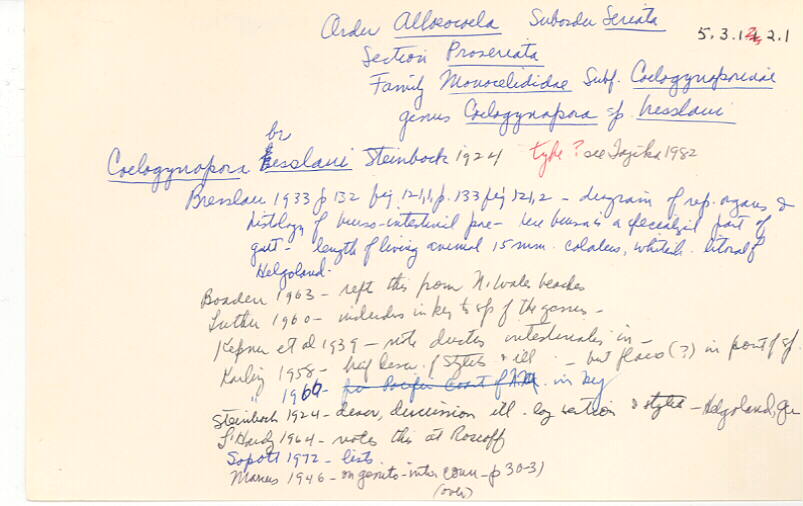 Order Alloeocoela Suborder Seriata 5.3.1 2.1
Section Proseriata
Family Monocelididae Subf. Coelogynoporinae
genus Coelogynopora sp. bresslaui
br
Coelogynopora esslaui Steinbock 1924 type? see Tajika 1982
Bresslau 1933 p 132 fig 121,1, p. 133 fig 121,2 - diagram of rep. organs &
histology of burso-intestinal pore - here bursa is a specialized part of
gut - length of living animal 15 mm. colorless, whitish. litoral of
Helgoland.
Boaden 1963 - rept this from N. Wales beaches
Luther 1960 - includes in key to sp of the genus -
Kepner et al 1939 - note ductus intestinalis in -
Karling 1958 - brief descr. of stylets & ill - but flaws (?) in
" 1966 - for Pacific Coast of in key
Steinbock 1924 - descr, discussion ill. sag section & stylets - Helgoland,
L'Hardy 1964 - notes this at Roscoff
Sopott 1972 - lists
Marcus 1946 - on genito-inter conn - p 30-31
(over)